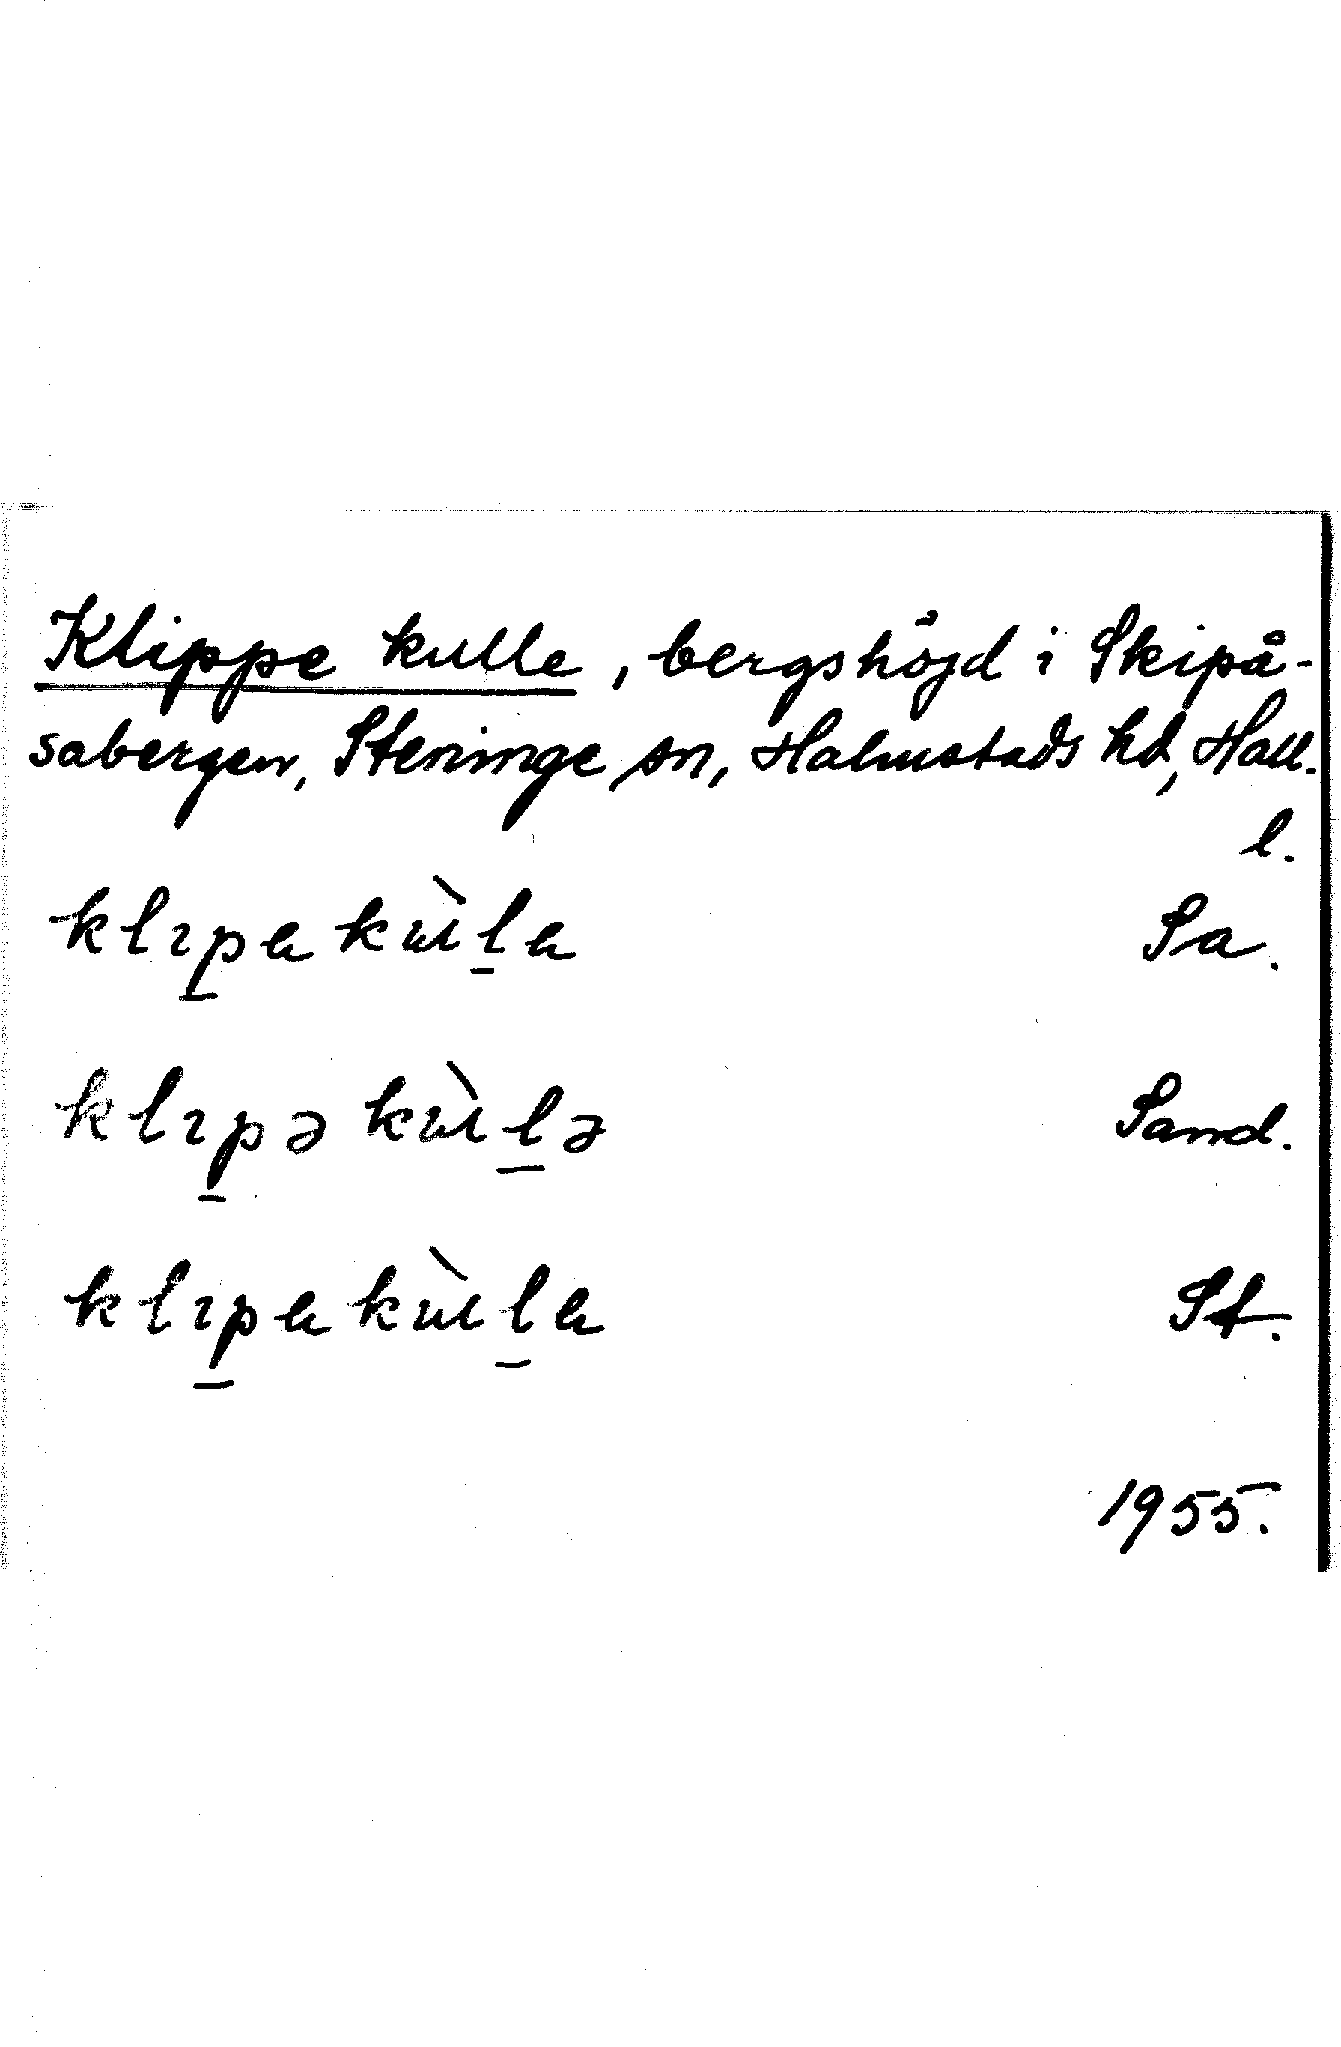 Klippe kulle, bergshöjd i Skipå-
sabergen, Steninge sn, Halmstads hd, Hall.
l.
klıp̲ɐ kùl̲ɐ Sa.
klıp̲ə kùl̲ə Sand.
klıp̲ɐ kùl̲ɐ St.
1955.